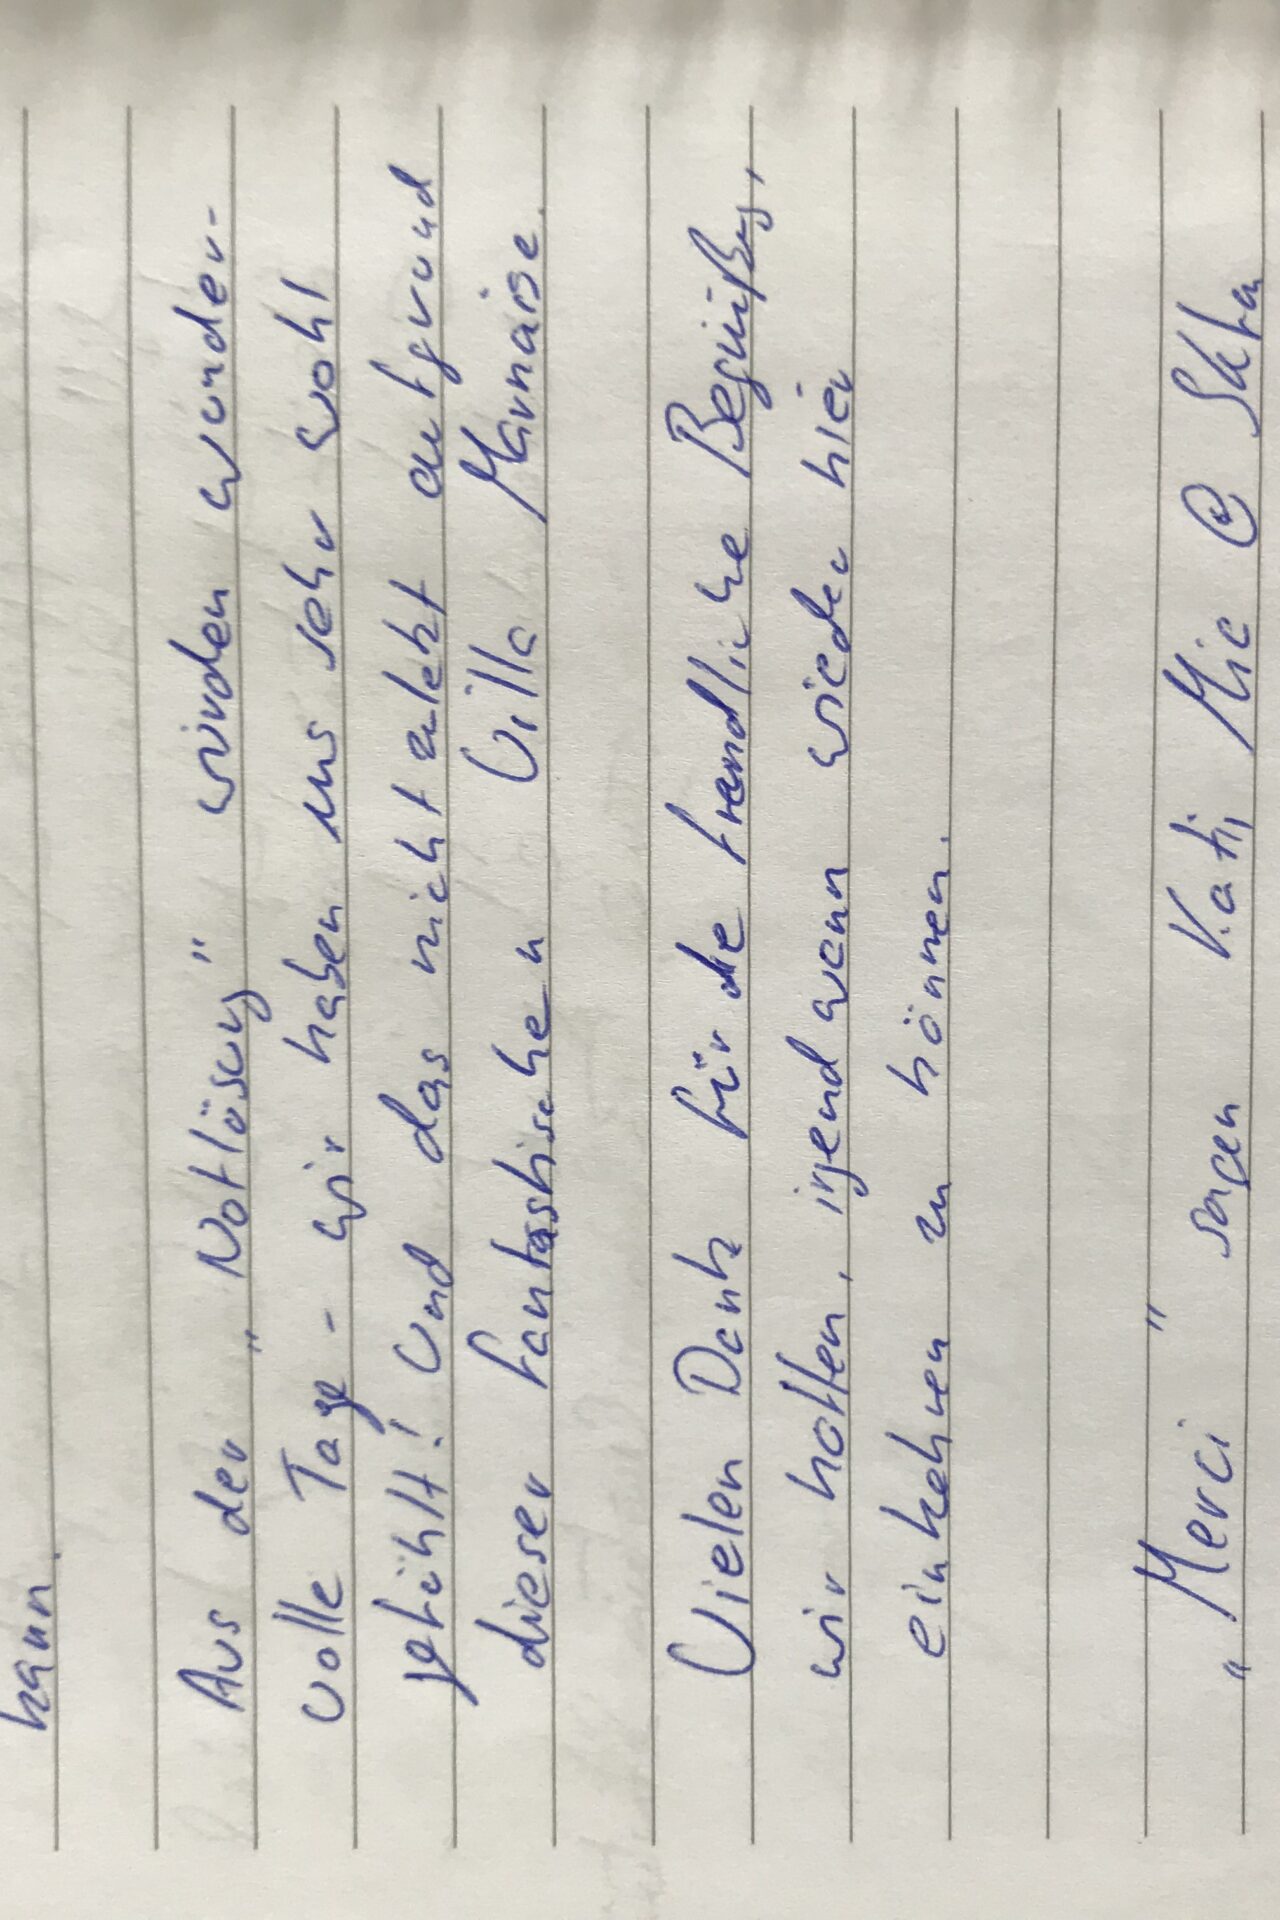 kann.
Aus der „Notlösung" würden wunder-
volle Tage - wir haben uns sehr wohl
gefühlt! Und das nicht zuletzt aufgrund
dieser fantastischen Villa Marnaise.
Vielen Dank für die freundliche Begrüßung,
wir hoffen, irgendwann wieder hier
einkehren zu können.
„Merci" sagen Kati, Mic &